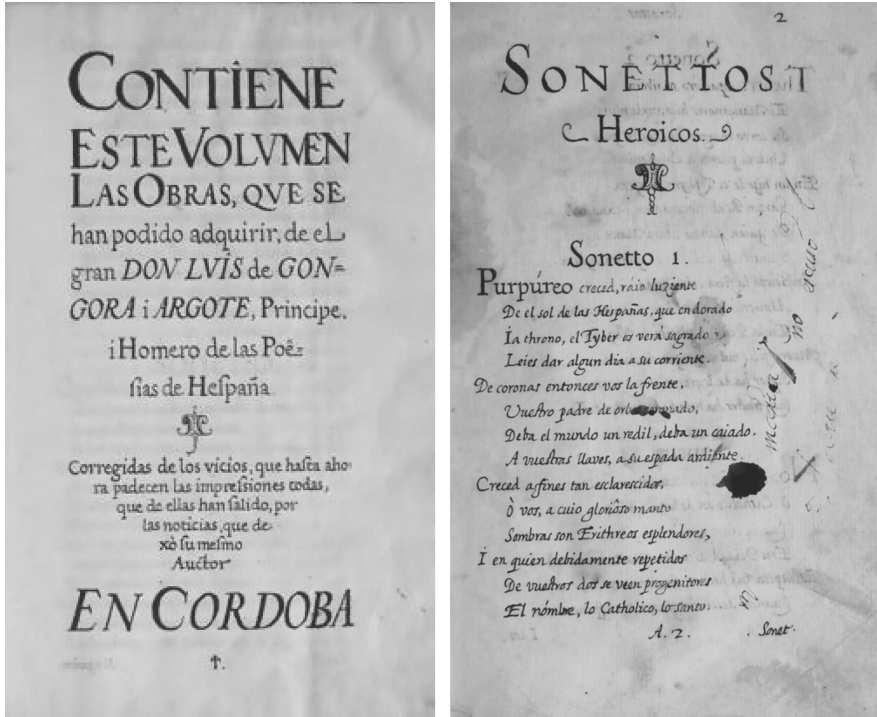 CONTIENE
ESTE VOLVMEN
LAS OBRAS, QVE SE
han podido adquirir, de el
gran DON LVIS de GON=
GORA i ARGOTE, Principe,
i Homero de las Poê=
ſias de Heſpaña
Corregidas de los vicios, que haſta aho
ra padecen las impreſsiones todas,
que de ellas han ſalido, por
las noticias, que de
xò ſu meſmo
Auctor
EN CORDOBA
†.
2
SONETTOS I
Heroicos.
Sonetto 1.
Purpúreo creced, ráio luziente
De el sol de las Hespañas, que en dorado
Ia throno, el Tyber os verà sagrado
Leies dar algun dia a su corriente.
De coronas entonces vos la frente,
Vuestro padre de orbes
Deba el mundo un redil, deba un caiado.
A vuestras llaves, a su espada ardiente.
Creced affines tan esclarescidos,
Ò vos, a cuio glorióso manto
Sombras son Erithreos esplendores,
I en quien debidamente repetidos
De vuestros dos se veen progenitores
El nómbre, lo Catholico, lo santo.
A. 2. Sonet.
no